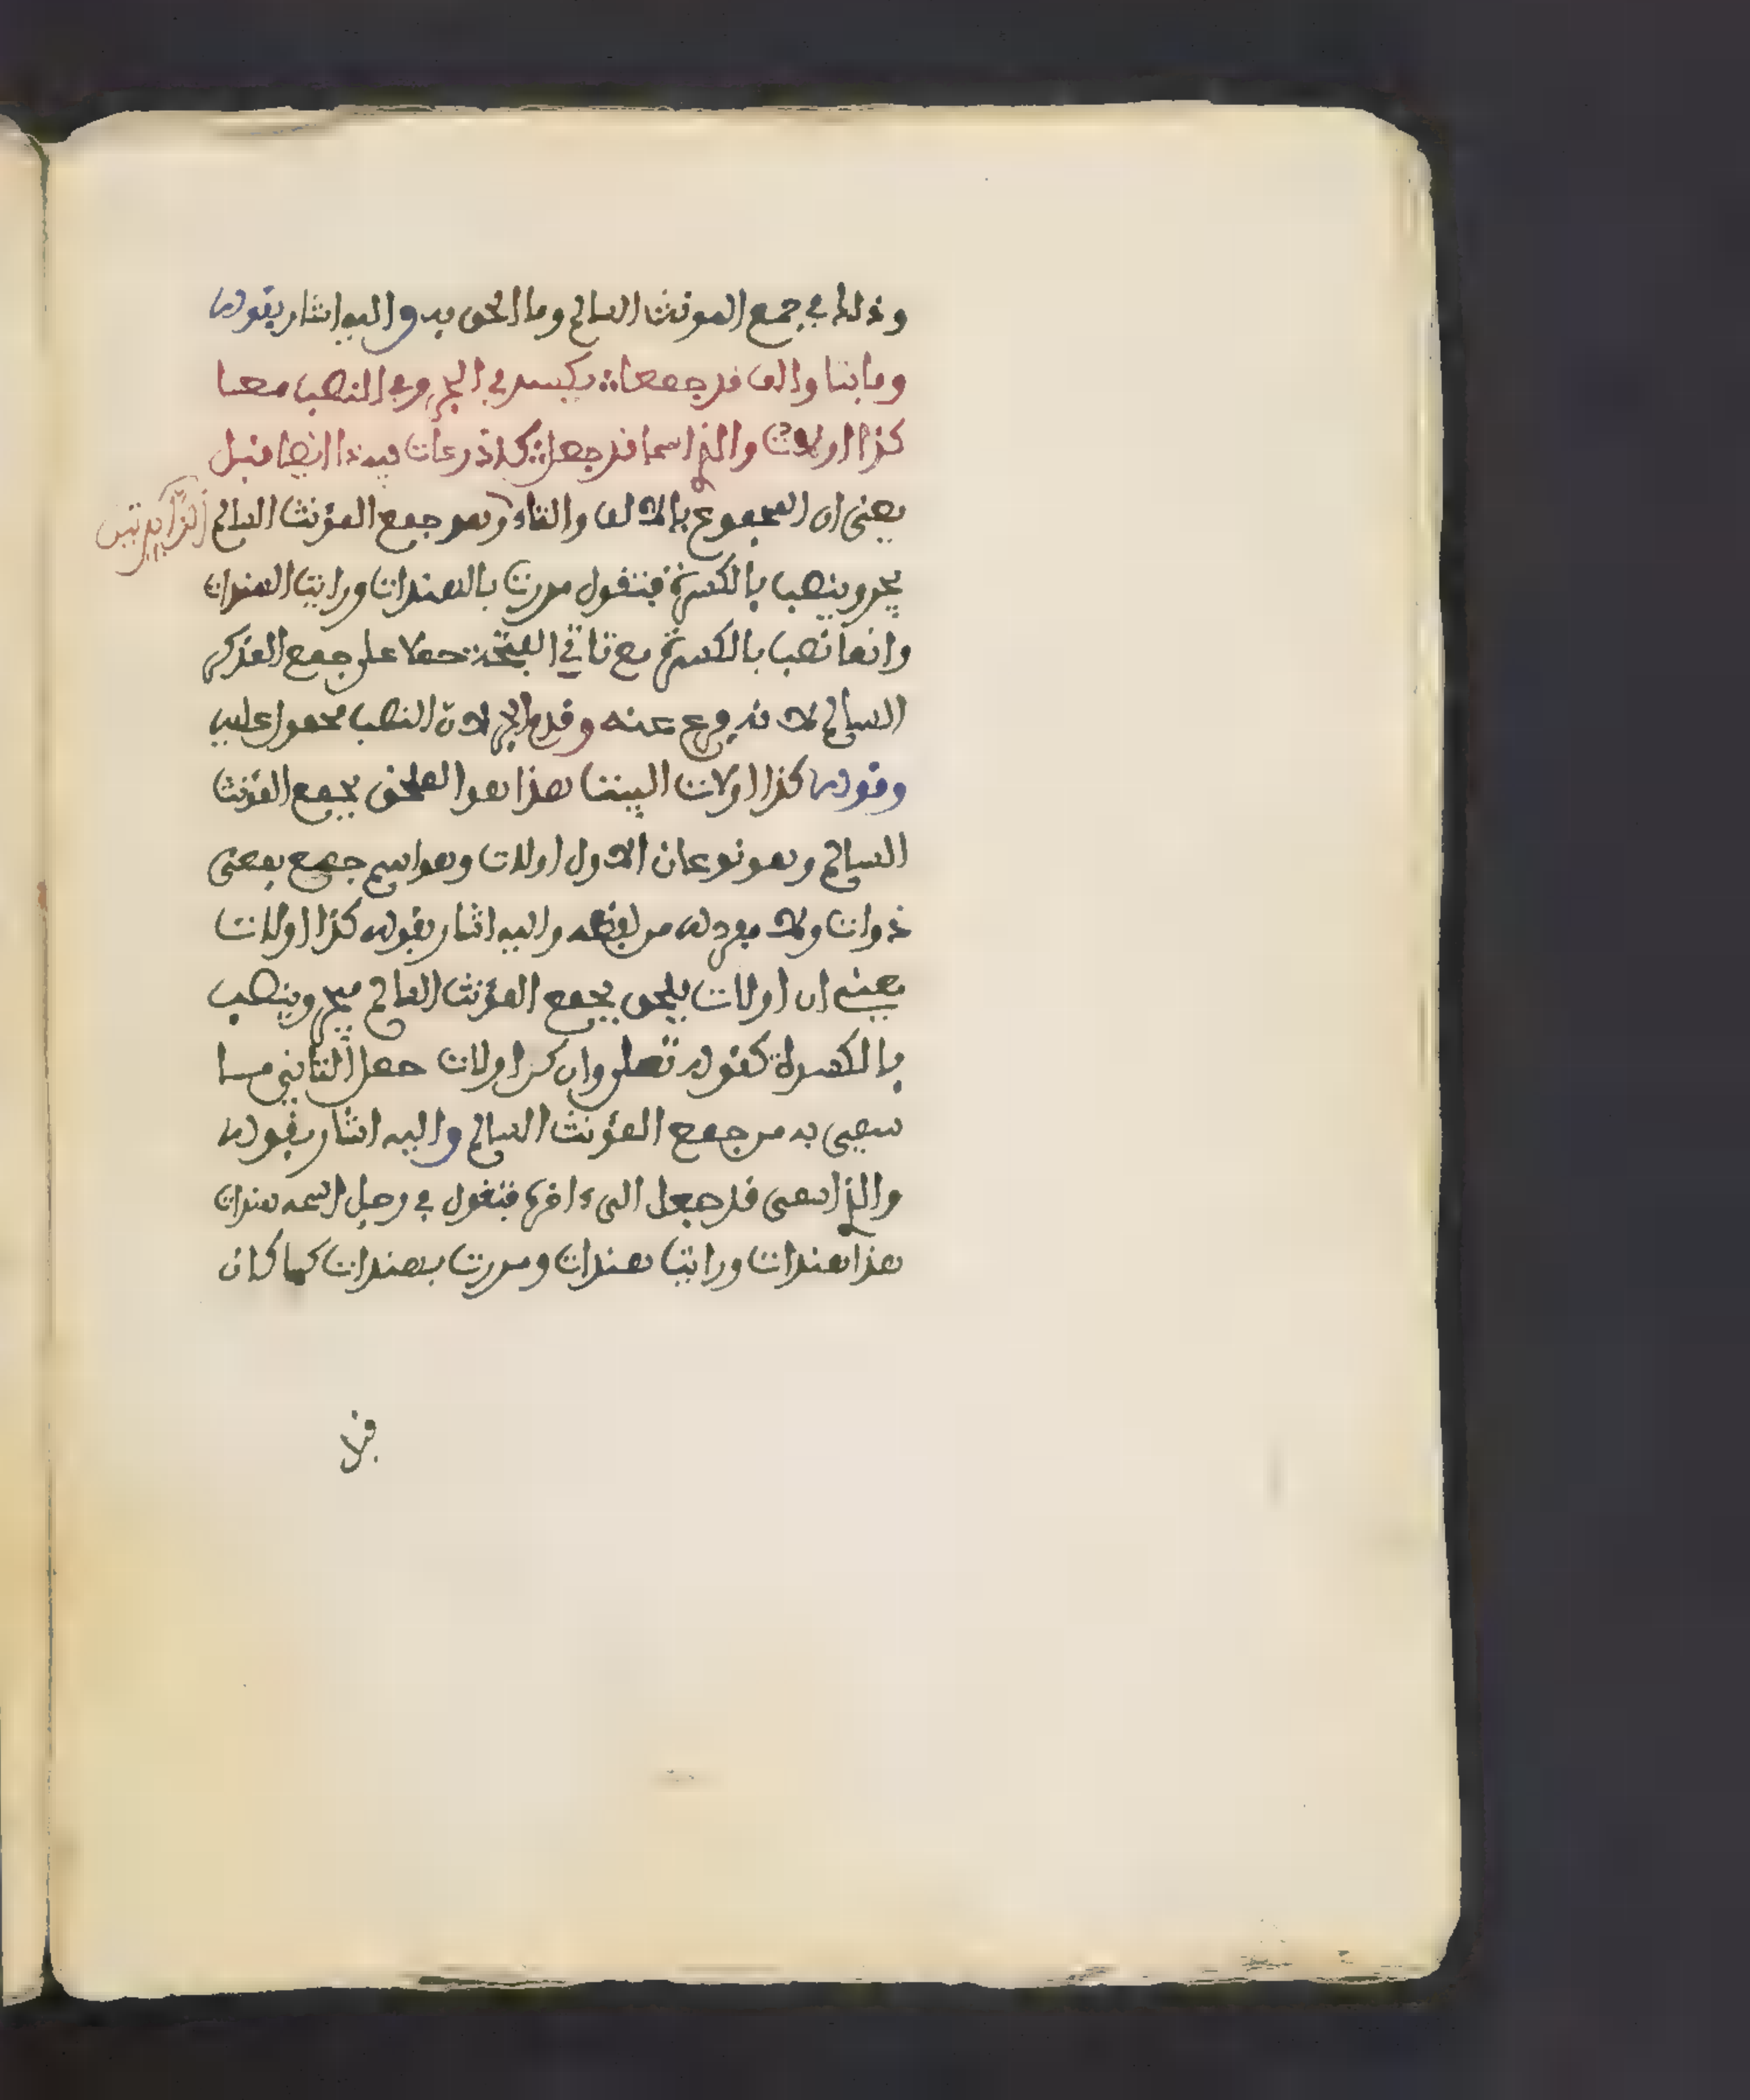 وذلك في جمع المونث السالم وما الحق به واليه اشار بقوله
وما بتا والف قد جمعا ∴ يكسر في الجر وفي النصب معا
كذا اولات والذي اسما قد جعل ∴ كاذرعات فيه ذا ايضا قبل
يعني ان المجموع بالالف والتاء وهو جمع المؤنث السالم
الزايدتين
يجر وينصب بالكسرة فتقول مررت بالهندات ورايت الهندات
وانما نصب بالكسرة مع تاتي الفتحة حملا على جمع المذكر
السالم لانه فرع عنه وقدم الجر لان النصب محمول عليه
وقوله كذا اولات البيت هذا هو الملحق بجمع المؤنث
السالم وهو نوعان الاول اولات وهو اسم جمع بمعنى
ذوات ولا مفرد له من لفظه واليه اشار بقوله كذا اولات
يعني ان اولات يلحق بجمع المؤنث السالم فيجر وينصب
بالكسرة كقوله تعلى وان كن اولات حمل الثاني ما
سمي به من جمع المؤنث السالم واليه اشار بقوله
والذي اسمى قد جعل فتقول في رجل اسمه هندات
هذا هندات ورايت هندات ومررت بهندات كما كان
قبل